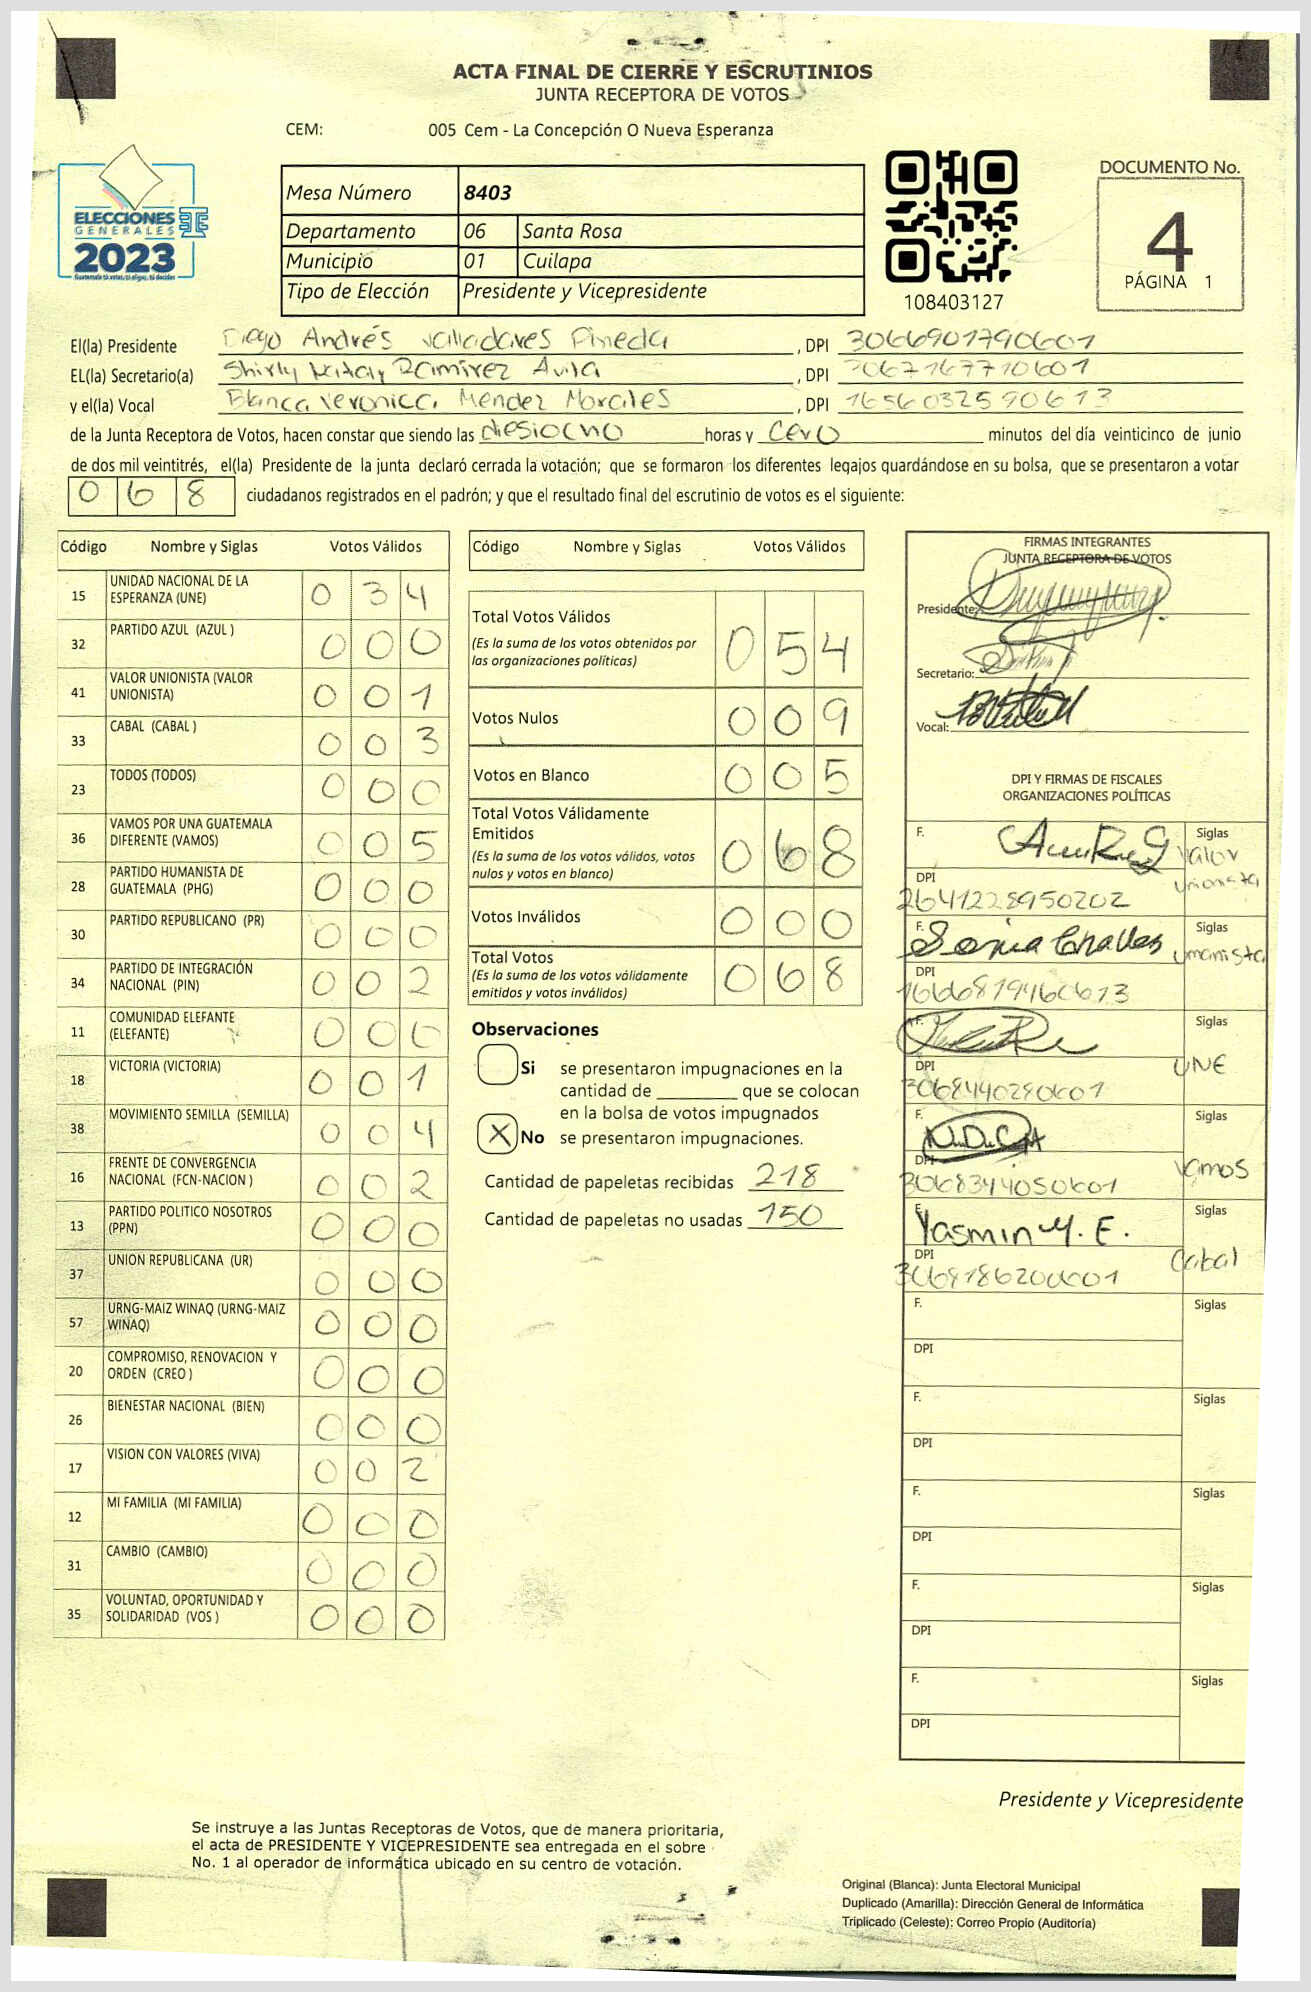 ACTA FINAL DE CIERRE Y ESCRUTINIOS
JUNTA RECEPTORA DE VOTOS
CEM: 005 Cem - La Concepción O Nueva Esperanza
ELECCIONES
GENERALES
2023
Guatemala tú votas, tú eliges, tú decides
Mesa Número 8403
Departamento 06 Santa Rosa
Municipio 01 Cuilapa
Tipo de Elección Presidente y Vicepresidente
108403127
DOCUMENTO No.
4
PÁGINA 1
El(la) Presidente Diego Andrés Valladares Pineda, DPI 3066901790601
EL(la) Secretario(a) Shirly Ramirez Avila, DPI 3067167710601
y el(la) Vocal Blanca Veronica Mendez Morales, DPI 1656032590613
de la Junta Receptora de Votos, hacen constar que siendo las diesiocho horas y cero minutos del día veinticinco de junio
de dos mil veintitrés, el(la) Presidente de la junta declaró cerrada la votación; que se formaron los diferentes legajos guardándose en su bolsa, que se presentaron a votar
0 6 8 ciudadanos registrados en el padrón; y que el resultado final del escrutinio de votos es el siguiente:
Código Nombre y Siglas Votos Válidos
15 UNIDAD NACIONAL DE LA ESPERANZA (UNE) 0 3 4
32 PARTIDO AZUL (AZUL ) 0 0 0
41 VALOR UNIONISTA (VALOR UNIONISTA) 0 0 1
33 CABAL (CABAL ) 0 0 3
23 TODOS (TODOS) 0 0 0
36 VAMOS POR UNA GUATEMALA DIFERENTE (VAMOS) 0 0 5
28 PARTIDO HUMANISTA DE GUATEMALA (PHG) 0 0 0
30 PARTIDO REPUBLICANO (PR) 0 0 0
34 PARTIDO DE INTEGRACIÓN NACIONAL (PIN) 0 0 2
11 COMUNIDAD ELEFANTE (ELEFANTE) 0 0 0
18 VICTORIA (VICTORIA) 0 0 1
38 MOVIMIENTO SEMILLA (SEMILLA) 0 0 4
16 FRENTE DE CONVERGENCIA NACIONAL (FCN-NACION ) 0 0 2
13 PARTIDO POLITICO NOSOTROS (PPN) 0 0 0
37 UNION REPUBLICANA (UR) 0 0 0
57 URNG-MAIZ WINAQ (URNG-MAIZ WINAQ) 0 0 0
20 COMPROMISO, RENOVACION Y ORDEN (CREO ) 0 0 0
26 BIENESTAR NACIONAL (BIEN) 0 0 0
17 VISION CON VALORES (VIVA) 0 0 2
12 MI FAMILIA (MI FAMILIA) 0 0 0
31 CAMBIO (CAMBIO) 0 0 0
35 VOLUNTAD, OPORTUNIDAD Y SOLIDARIDAD (VOS ) 0 0 0
Código Nombre y Siglas Votos Válidos
Total Votos Válidos 0 5 4
(Es la suma de los votos obtenidos por
las organizaciones políticas)
Votos Nulos 0 0 9
Votos en Blanco 0 0 5
Total Votos Válidamente
Emitidos 0 6 8
(Es la suma de los votos válidos, votos
nulos y votos en blanco)
Votos Inválidos 0 0 0
Total Votos 0 6 8
(Es la suma de los votos válidamente
emitidos y votos inválidos)
Observaciones
Si se presentaron impugnaciones en la
cantidad de ________ que se colocan
en la bolsa de votos impugnados
X No se presentaron impugnaciones.
Cantidad de papeletas recibidas 218
Cantidad de papeletas no usadas 150
FIRMAS INTEGRANTES
JUNTA RECEPTORA DE VOTOS
Presidente:
Secretario:
Vocal:
DPI Y FIRMAS DE FISCALES
ORGANIZACIONES POLÍTICAS
F. Siglas Valor Unionista
DPI 2641228950202
F. Sonia Siglas Umanista
DPI 1666819460613
F. Siglas UNE
DPI 3068440280601
F. Siglas Vamos
DPI 3068344050601
F. Yasmin Y. E. Siglas Cabal
DPI 3068186200601
F. Siglas
DPI
F. Siglas
DPI
F. Siglas
DPI
F. Siglas
DPI
F. Siglas
DPI
Presidente y Vicepresidente
Se instruye a las Juntas Receptoras de Votos, que de manera prioritaria,
el acta de PRESIDENTE Y VICEPRESIDENTE sea entregada en el sobre
No. 1 al operador de informática ubicado en su centro de votación.
Original (Blanca): Junta Electoral Municipal
Duplicado (Amarilla): Dirección General de Informática
Triplicado (Celeste): Correo Propio (Auditoría)